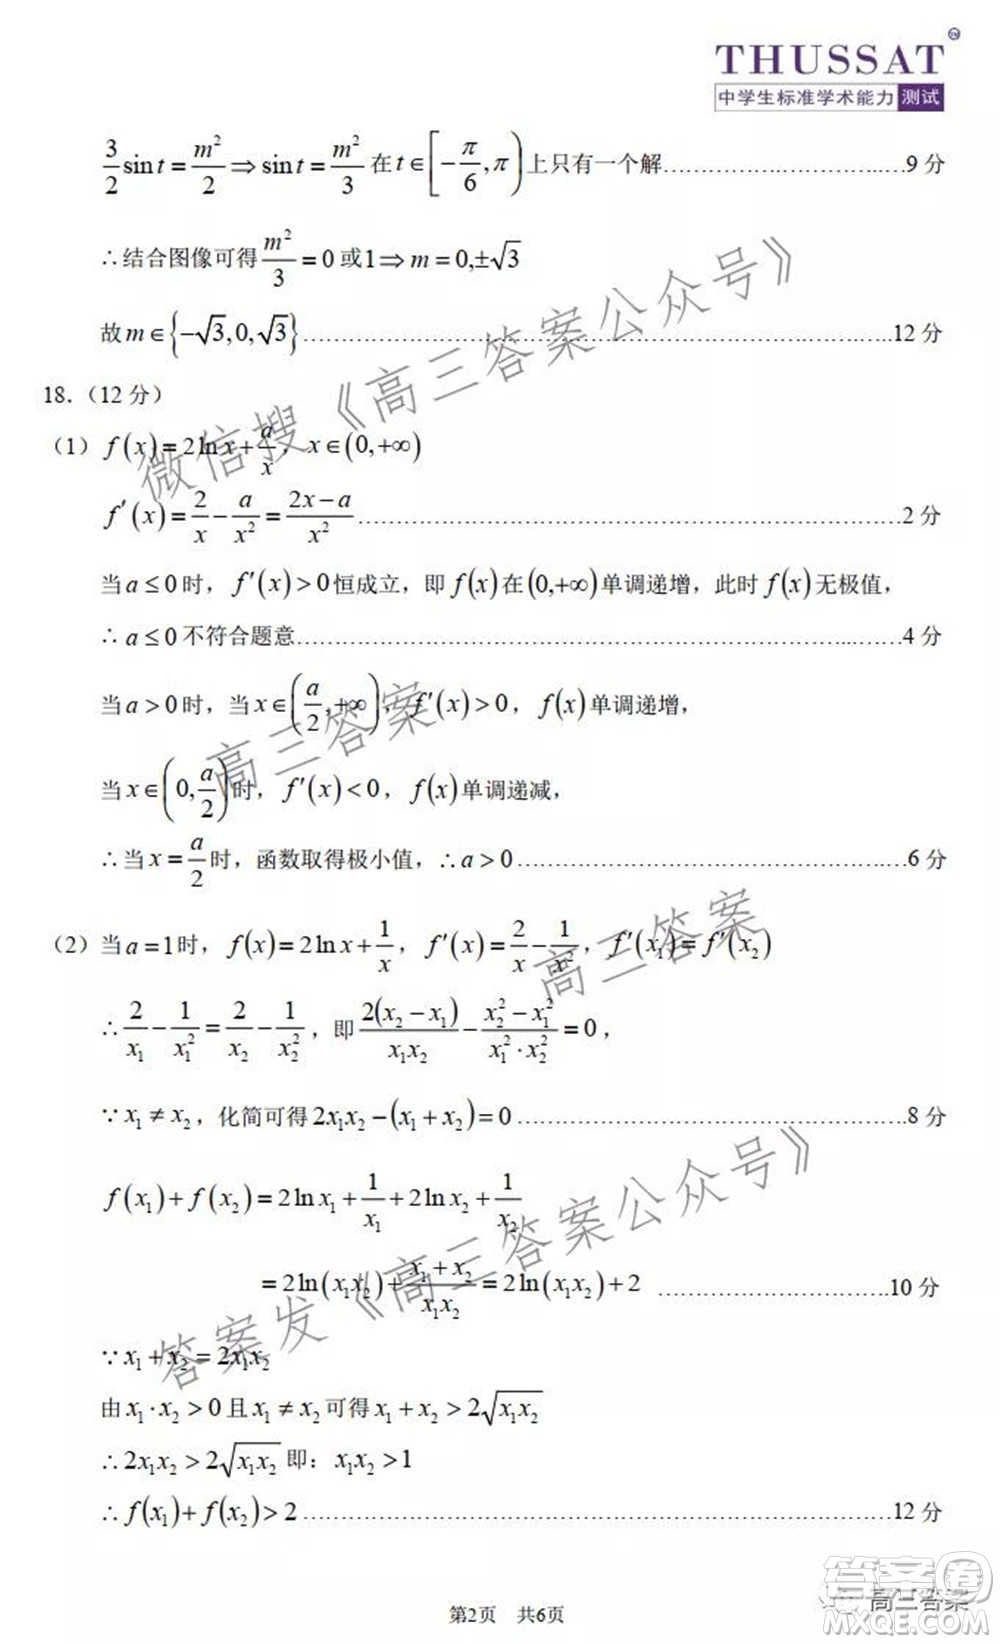 THUSSAT
中学生标准学术能力 测试
3/2 sin t = m²/2 ⇒ sin t = m²/3 在 t∈[-π/6, π) 上只有一个解……………………………9 分
∴结合图像可得 m²/3 = 0 或 1 ⇒ m = 0, ±√3
故 m∈{-√3, 0, √3}……………………………12 分
18.（12 分）
（1）f(x) = 2ln x + a/x，x∈(0,+∞)
f′(x) = 2/x - a/x² = (2x-a)/x²……………………………2 分
当 a ≤ 0 时，f′(x) > 0 恒成立，即 f(x) 在 (0,+∞) 单调递增，此时 f(x) 无极值，
∴ a ≤ 0 不符合题意……………………………4 分
当 a > 0 时，当 x∈(a/2, +∞)，f′(x) > 0，f(x) 单调递增，
当 x∈(0, a/2) 时，f′(x) < 0，f(x) 单调递减，
∴当 x = a/2 时，函数取得极小值，∴a > 0……………………………6 分
（2）当 a = 1 时，f(x) = 2ln x + 1/x，f′(x) = 2/x - 1/x²，f′(x₁) = f′(x₂)
∴ 2/x₁ - 1/x₁² = 2/x₂ - 1/x₂²，即 2(x₂-x₁)/(x₁x₂) - (x₂²-x₁²)/(x₁²·x₂²) = 0，
∵ x₁ ≠ x₂，化简可得 2x₁x₂ - (x₁+x₂) = 0……………………………8 分
f(x₁) + f(x₂) = 2ln x₁ + 1/x₁ + 2ln x₂ + 1/x₂
= 2ln(x₁x₂) + (x₁+x₂)/(x₁x₂) = 2ln(x₁x₂) + 2……………………………10 分
∵ x₁ + x₂ = 2x₁x₂
由 x₁·x₂ > 0 且 x₁ ≠ x₂ 可得 x₁ + x₂ > 2√(x₁x₂)
∴ 2x₁x₂ > 2√(x₁x₂) 即：x₁x₂ > 1
∴ f(x₁) + f(x₂) > 2……………………………12 分
第2页 共6页
微信搜《高三答案公众号》
高三答案
高三答案
答案发《高三答案公众号》
高三答案
答案卷
MXQE.COM